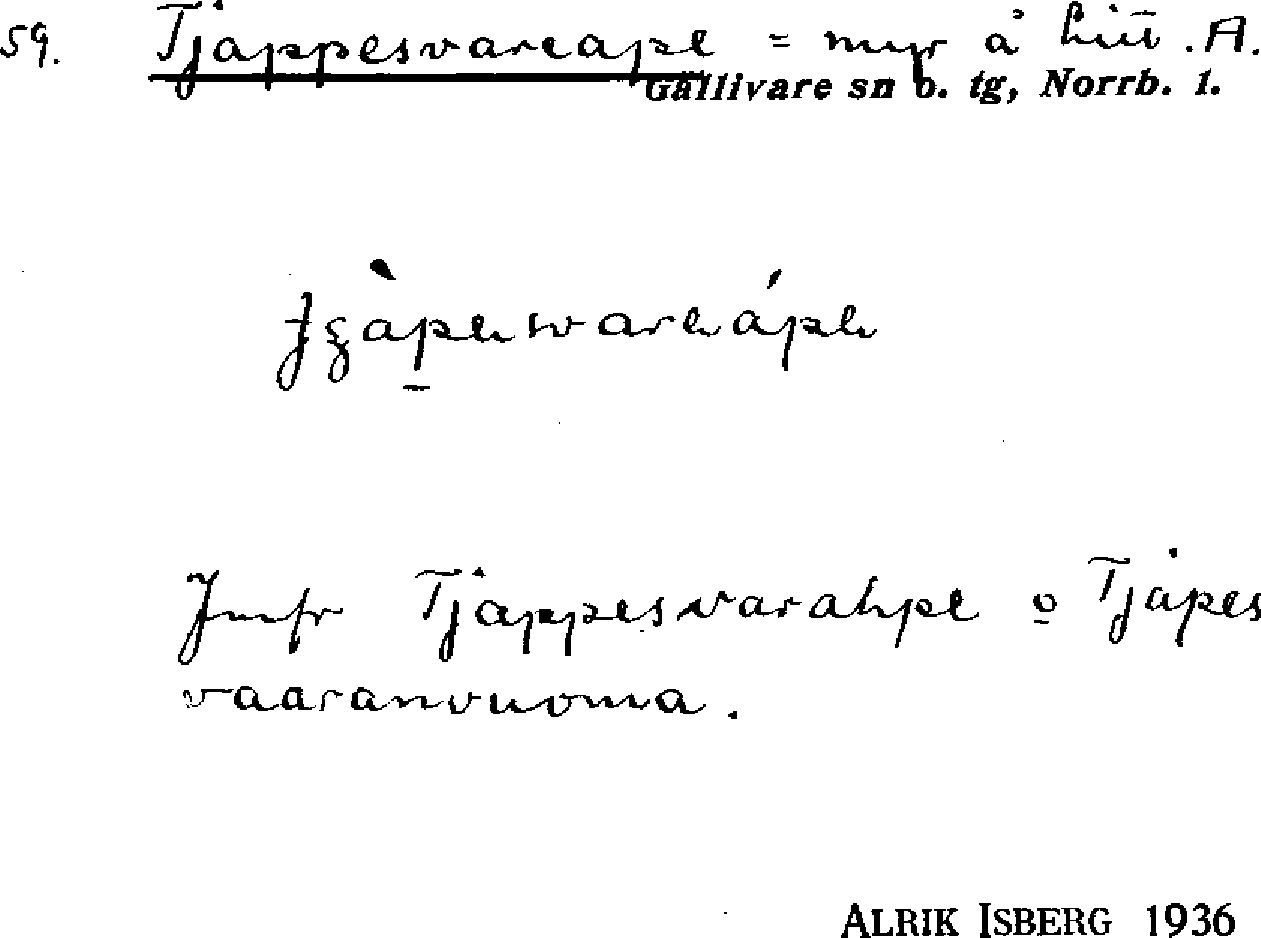 59. Tjappesvareape = myr å hit. A.
Gällivare sn o. tg, Norrb. l.
Jmfr Tjappesvarahpe o Tjapes
vaaranvuoma.
ALRIK ISBERG 1936